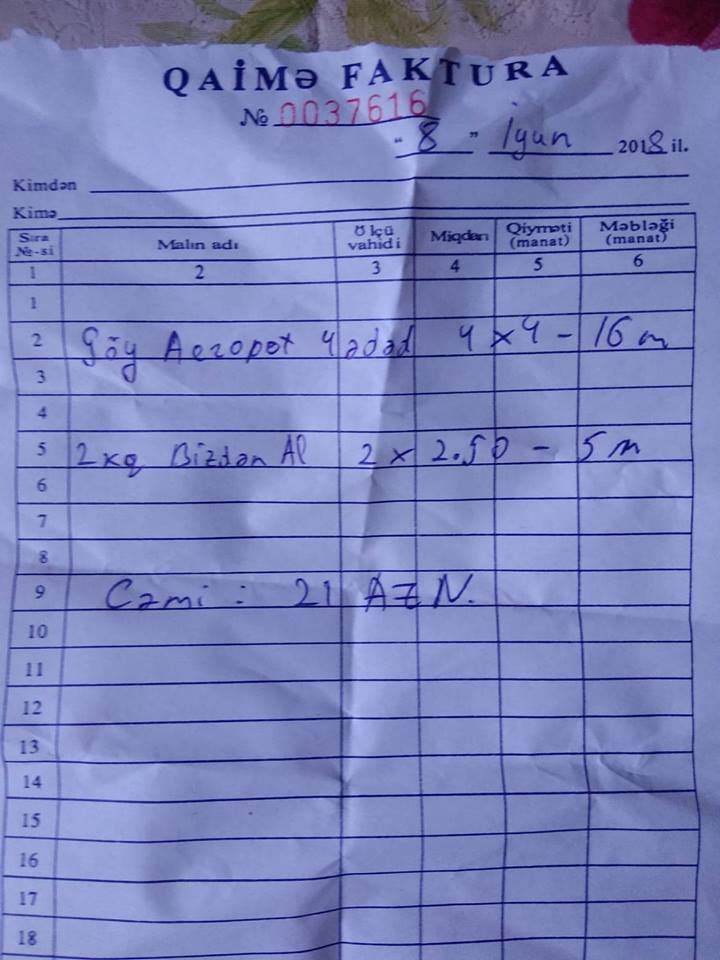 QAİMƏ FAKTURA
№ 0037616
" 8 " İyun 2018 il.
Kimdən
Kimə
Sıra №-si Malın adı Ölçü vahidi Miqdarı Qiyməti (manat) Məbləği (manat)
1 2 3 4 5 6
1
2 Göy Aeropot 4 ədəd 4 x 4 - 16 m
3
4
5 2 kq Bizdən Al 2 x 2.50 - 5 m
6
7
8
9 Cəmi : 21 AZN.
10
11
12
13
14
15
16
17
18